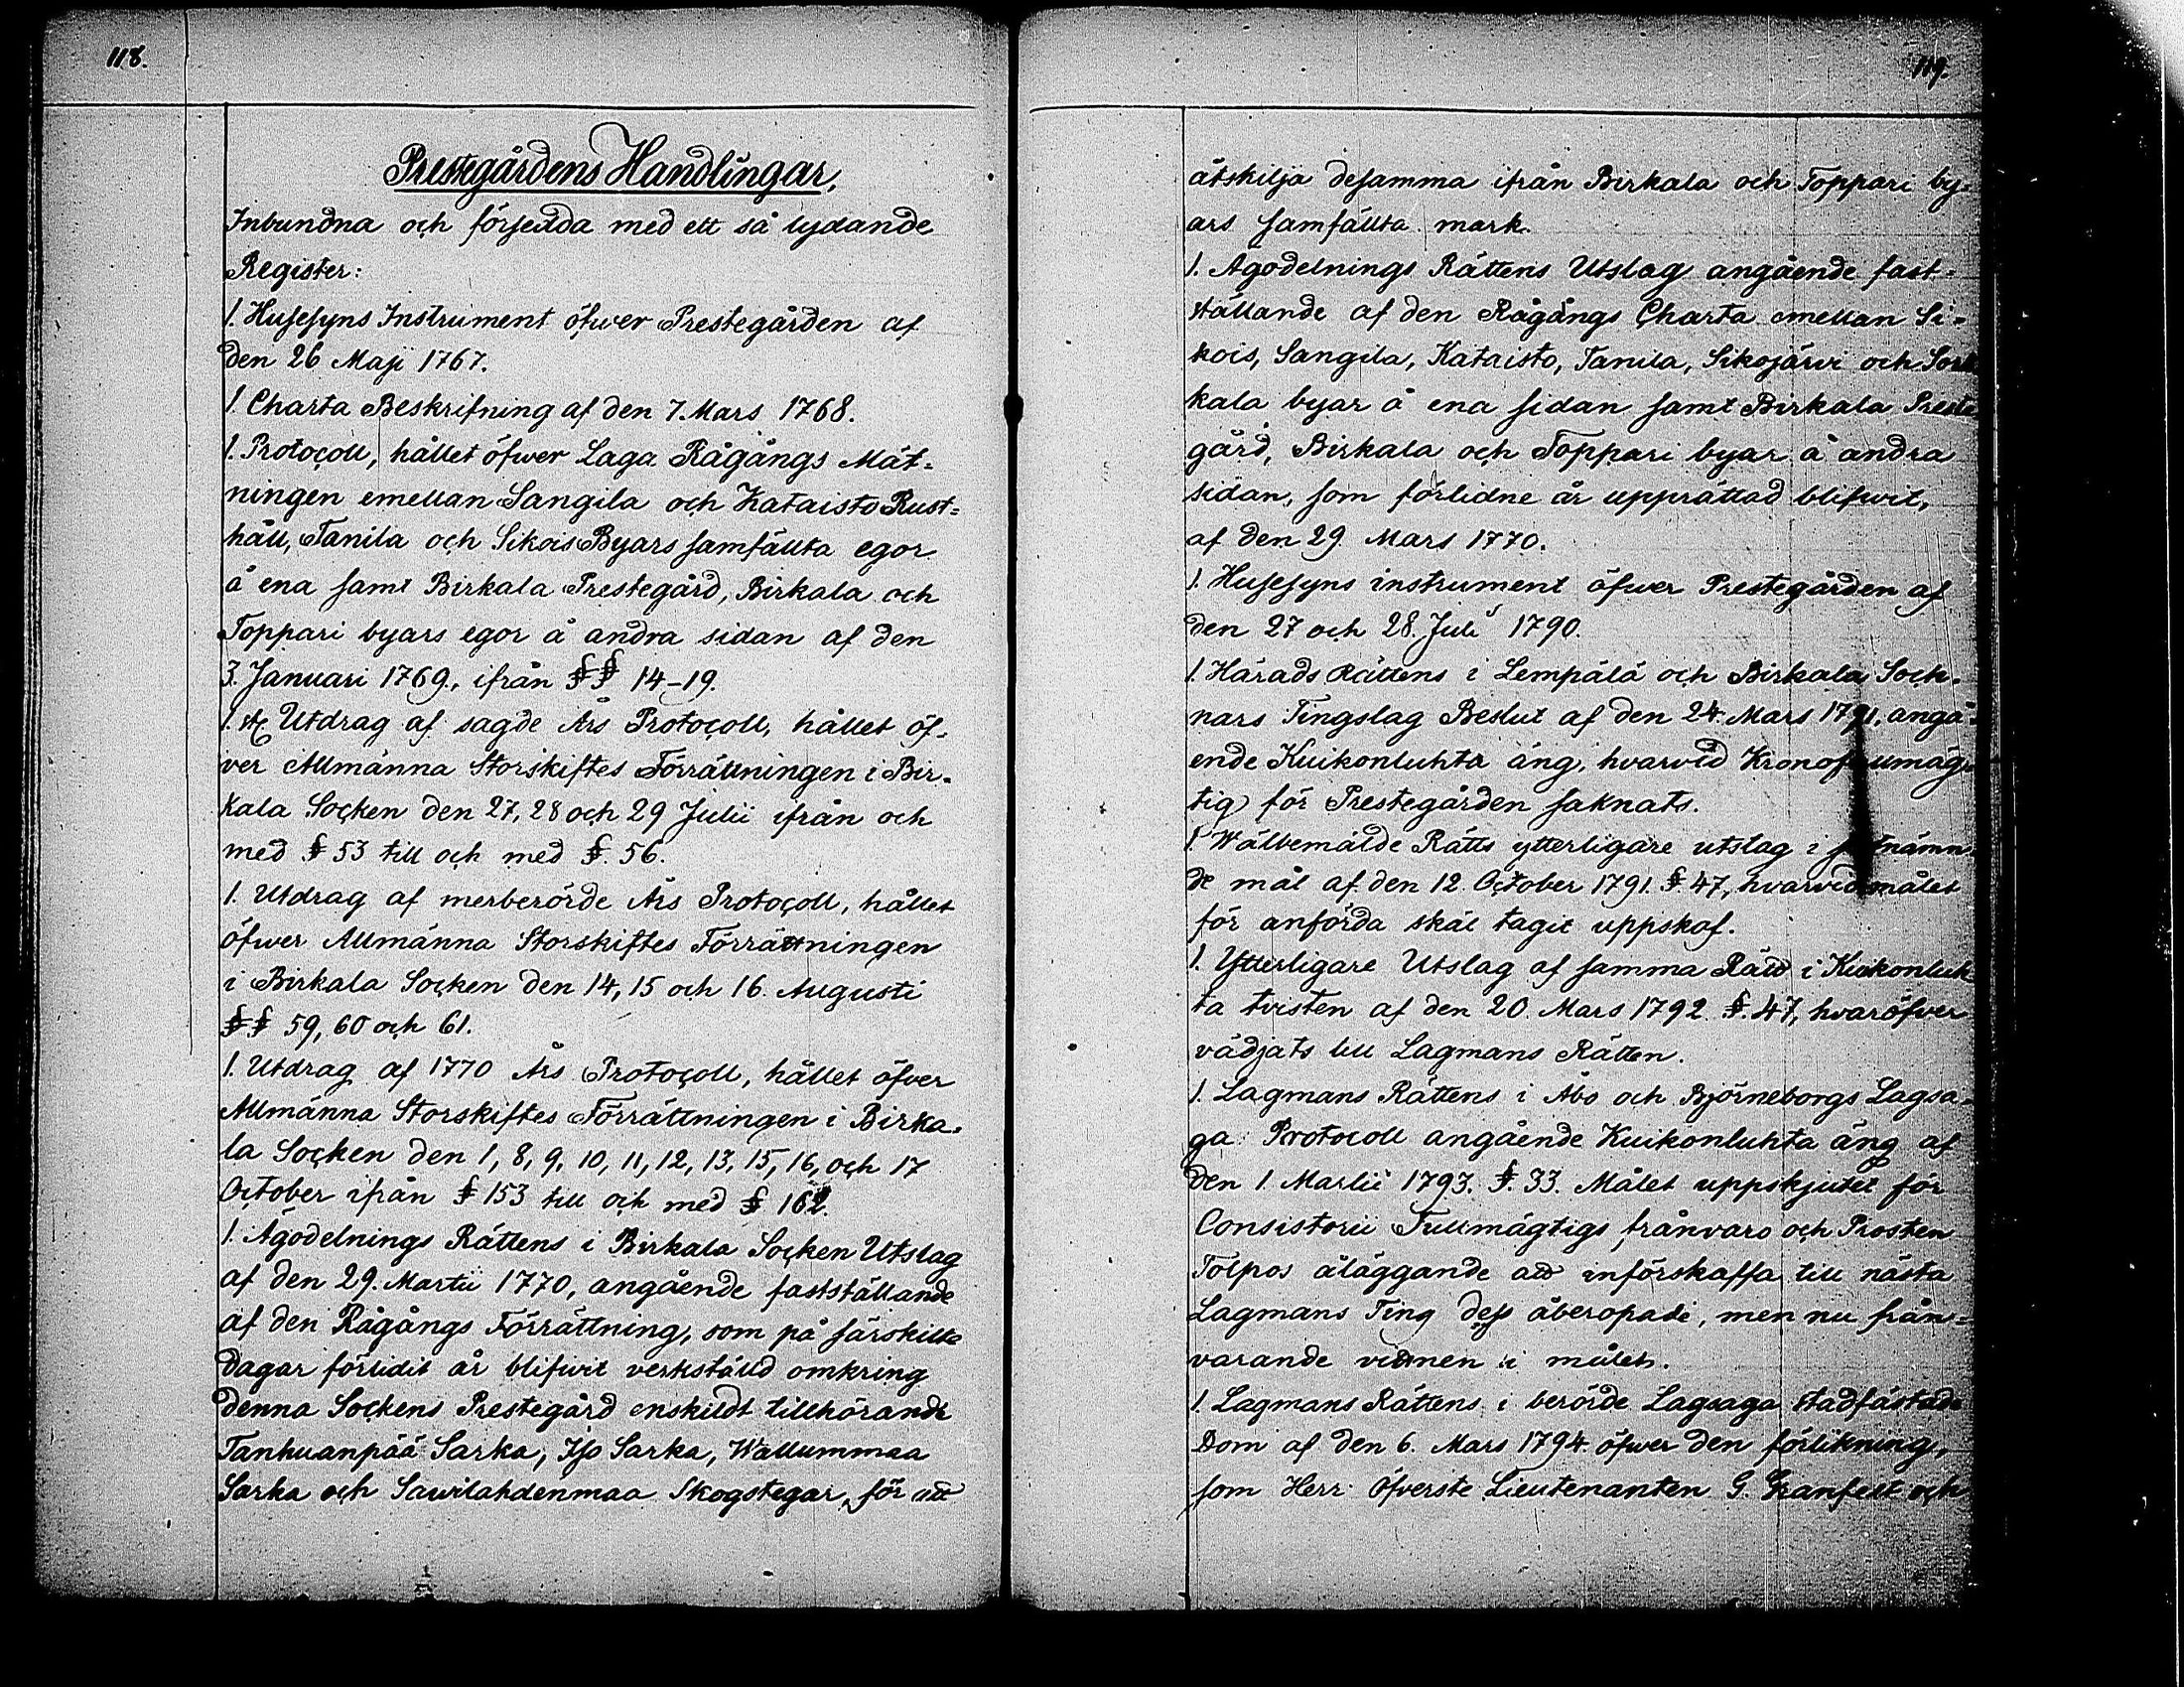 118.
Prestegårdens Handlingar,
Inbundna och försedda med ett så lydande
Register:
1. Husesyns Instrument öfwer Prestegården af
den 26 Maji 1767.
1. Charta Beskrifning af den 7. Mars 1768.
1. Protocoll, hållet öfwer Laga Rågångs Mät=
ningen emellan Sangila och Kataisto Rust=
håll, Tanila och Sikois Byars samfällta egor
å ena samt Birkala Prestegård, Birkala och
Toppari byars egor å andra sidan af den
3. Januari 1769., ifrån §§ 14-19.
1. st. Utdrag af sagde Års Protocoll, hållet öf-
ver Allmänna Storskiftes Förrättningen i Bir-
kala Socken den 27, 28 och 29 Julii ifrån och
med § 53 till och med §. 56.
1. Utdrag af merberörde Års Protocoll, hållet
öfwer Allmänna Storskiftes Förrättningen
i Birkala Socken den 14, 15 och 16. Augusti
§§ 59, 60 och 61.
1. Utdrag af 1770 Års Protocoll, hållet öfver
Allmänna Storskiftes Förrättningen i Birka-
la Socken den 1, 8, 9, 10, 11, 12, 13, 15, 16, och 17
October ifrån § 153 till och med § 162.
1. Ägodelnings Rättens i Birkala Socken Utslag
af den 29. Martii 1770, angående fastställande
af den Rågångs Förrättning, som på särskilte
dagar förlidit år blifwit verkställd omkring
denna Sockens Prestegård enskildt tillhörande
Tanhuanpää Sarka, Iso Sarka, Wallummaa
Sarka och Sawilahdenmaa Skogstegar, för att
119.
åtskilja desamma ifrån Birkala och Toppari by=
ars samfällta mark.
1. Ägodelnings Rättens Utslag angående fast=
ställande af den Rågångs Charta emellan Si=
kois, Sangila, Kataisto, Tanila, Sikojärvi och Sork
kala byar å ena sidan samt Birkala Preste
gård, Birkala och Toppari byar å andra
sidan, som förlidne år upprättad blifwit,
af den 29. Mars 1770.
1. Husesyns instrument öfwer Prestegården af
den 27 och 28. Juli 1790.
1. Härads Rättens i Lempälä och Birkala Sock-
nars Tingslag Beslut af den 24. Mars 1791, angå=
ende Kuikonluhta äng, hvarvid Kronofullmäg-
tig för Prestegården saknats.
1. Wälbemälde Rätts ytterligare utslag i
de mål af den 12. October 1791. § 47, hvarvid målet
för anförda skäl tagit uppskof.
1. Ytterligare Utslag af samma Rätt i Kuikonluh
ta tvisten af den 20. Mars 1792. §. 47, hvaröfver
vädjats till Lagmans Rätten.
1. Lagmans Rättens i Åbo och Björneborgs Lagsa=
ga Protocoll angående Kuikonluhta äng af
den 1 Martii 1793. §. 33. Målet uppskjutet för
Consistorii Fullmägtigs frånvaro och Prosten
Tolpos åläggande att införskaffa till nästa
Lagmans Ting dess åberopade, men nu från=
varande vidnen i målet.
1. Lagmans Rättens i berörde Lagsaga stadfästade
Dom af den 6. Mars 1794. öfwer den förlikning,
som Herr Öfverste Lieutenanten G. Granfelt och